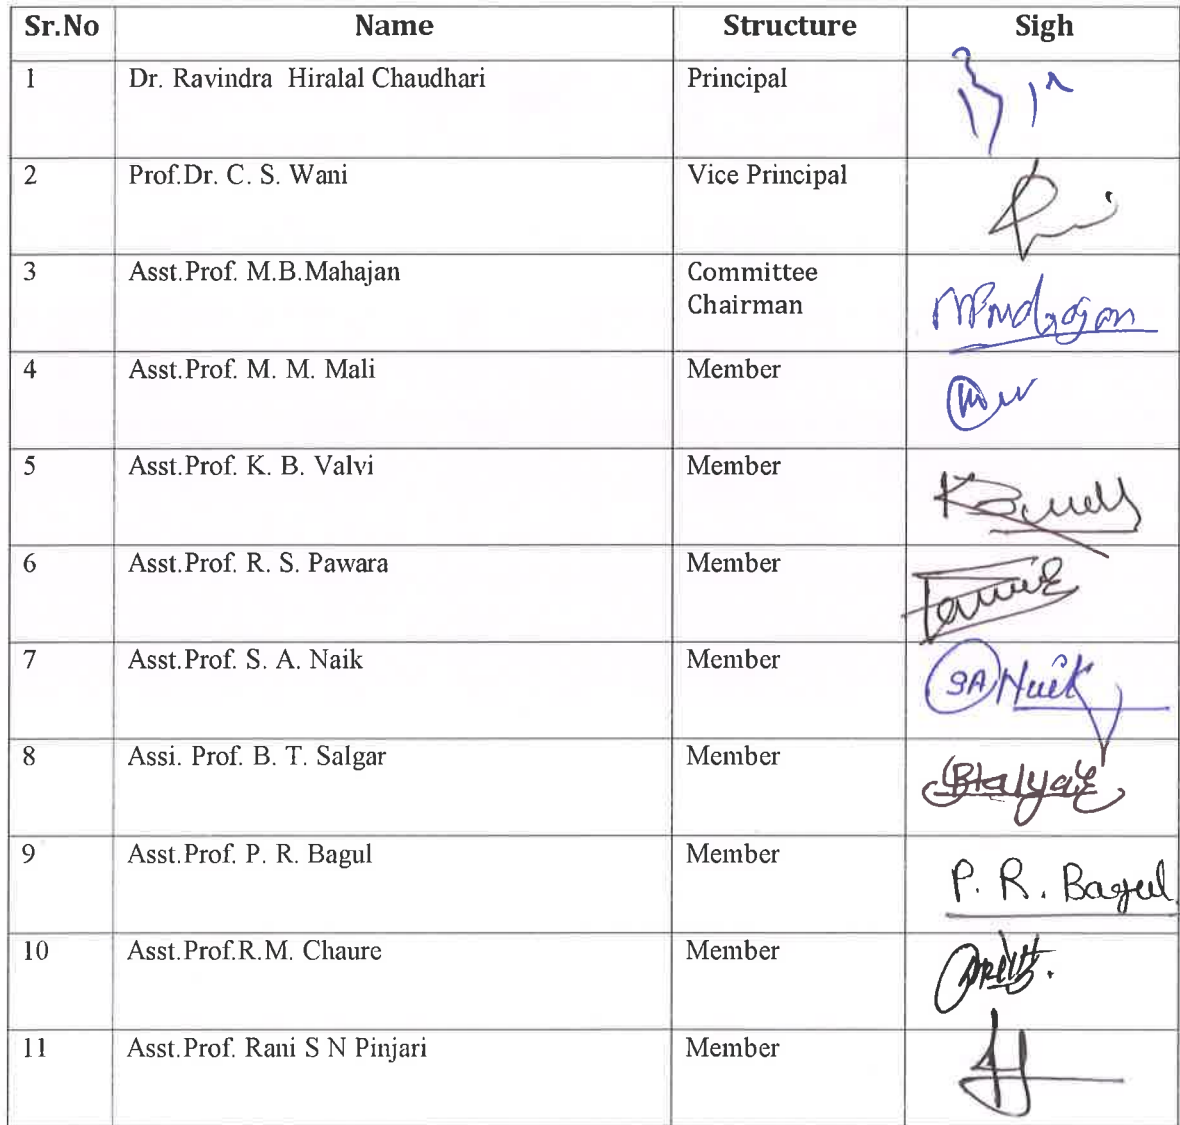 Sr.No Name Structure Sigh
1 Dr. Ravindra Hiralal Chaudhari Principal
2 Prof.Dr. C. S. Wani Vice Principal
3 Asst.Prof. M.B.Mahajan Committee
Chairman
4 Asst.Prof. M. M. Mali Member
5 Asst.Prof. K. B. Valvi Member
6 Asst.Prof. R. S. Pawara Member
7 Asst.Prof. S. A. Naik Member SA Naik
8 Assi. Prof. B. T. Salgar Member
9 Asst.Prof. P. R. Bagul Member P. R. Bagul
10 Asst.Prof.R.M. Chaure Member
11 Asst.Prof. Rani S N Pinjari Member